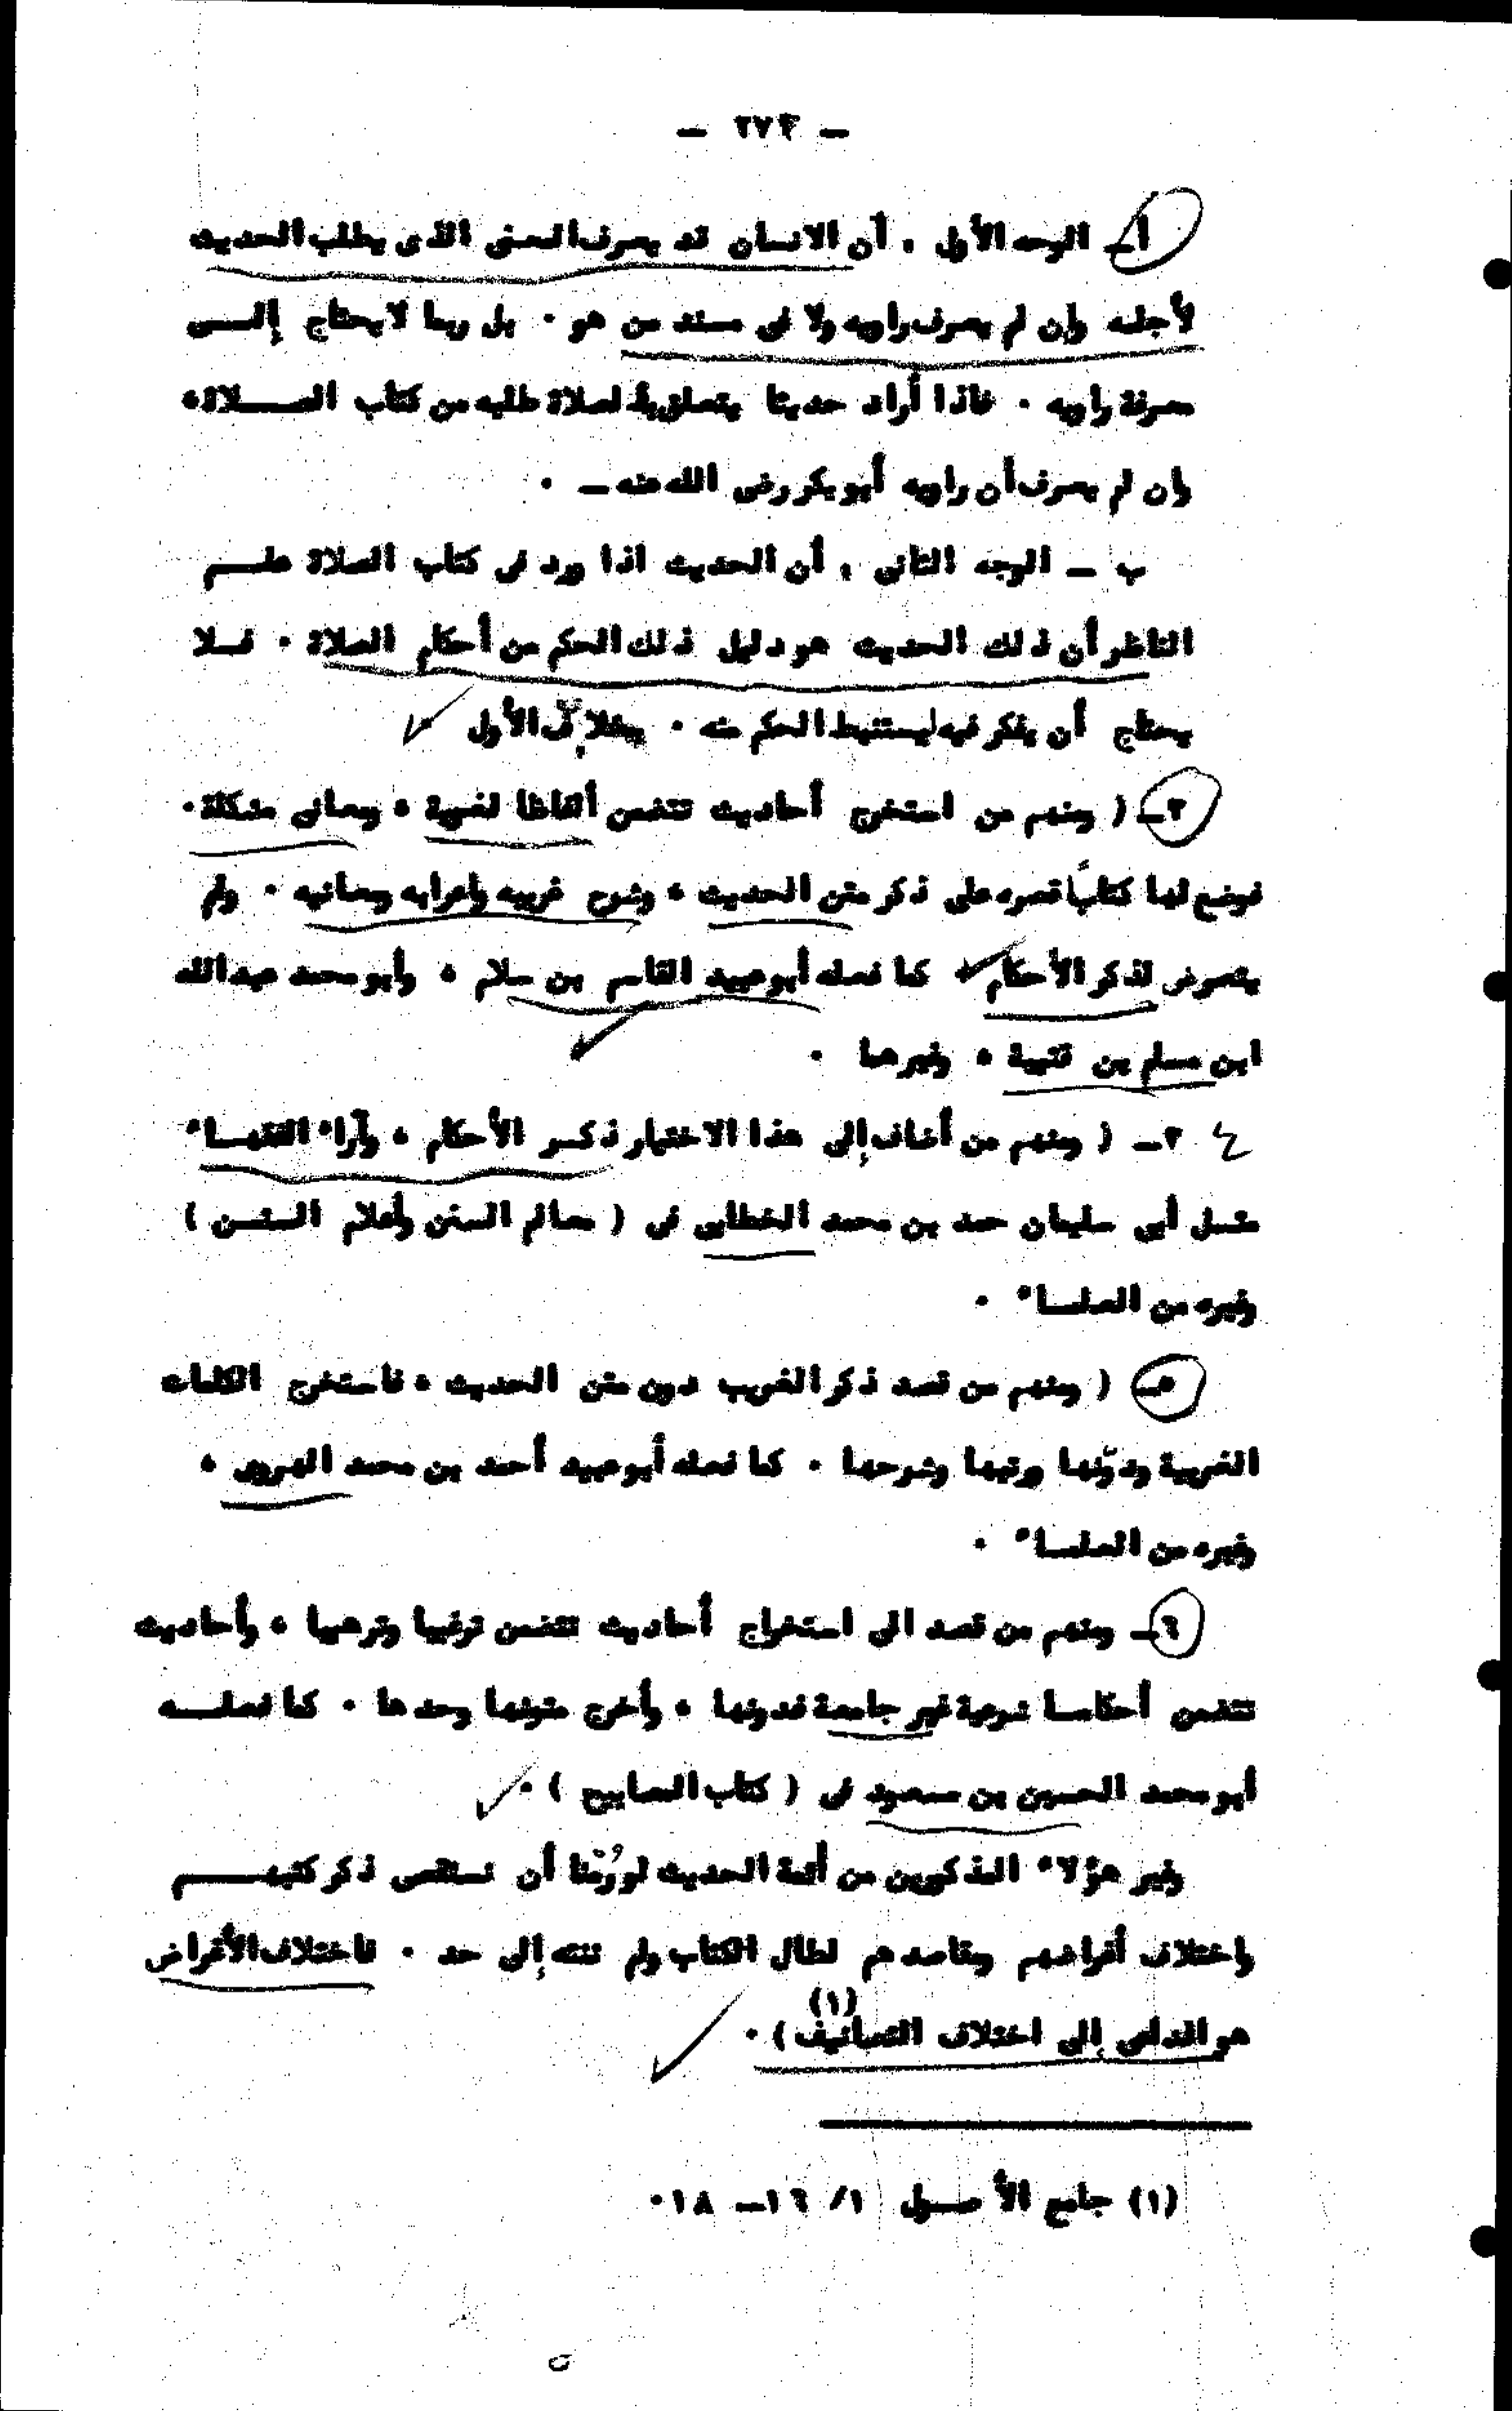 — ٢٧٣ —
أ ـ الوجه الأول ، أن الانسان قد يعرف المعنى الذى يطلب الحديث
لأجله وإن لم يعرف راويه ولا فى مسند من هو ٠ بل ربما لا يحتاج إلـــى
معرفة راويه ٠ فاذا أراد حديثا يتعلق بالصلاة طلبه من كتاب الصـــلاة ،
وان لم يعرف أن راويه أبو بكر رضى الله عنه ـ ٠
ب ـ الوجه الثانى ، أن الحديث اذا ورد فى كتاب الصلاة علـــم
الناظر أن ذلك الحديث هو دليل ذلك الحكم من أحكام الصلاة ٠ فــلا
يحتاج أن يفكر فيه ليستنبط الحكم منه ٠ بخلاف الأول ٠
٣ـ ( ومنهم من استخرج أحاديث تتضمن ألفاظا لغوية ، ومعانى مشكلة ٠
فوضع لها كتابًا قصره على ذكر متن الحديث ، وشرح غريبه وإعرابه ومعانيه ٠ ولم
يتعرض لذكر الأحكام ، كما فعله أبو عبيد القاسم بن سلام ، وأبو محمد عبد الله
ابن مسلم بن قتيبة ، وغيرهما ٠
٤ ٣ـ ( ومنهم من أضاف إلى هذا الاختيار ذكـر الأحكام ، وآراء الفقهـاء
مثـل أبى سليمان حمد بن محمد الخطابى فى ( معالم السنن وأعلام السنـن )
وغيره من العلمـاء ٠
٥ـ ( ومنهم من قصد ذكر الغريب دون متن الحديث ، فاستخرج الكلمات
الغريبة ودوّنها ورتبها وشرحها ٠ كما فعله أبو عبيد أحمد بن محمد الهروى ،
وغيره من العلمـاء ٠
٦ـ ومنهم من قصد الى استخراج أحاديث تتضمن ترغيبا وترهيبا ، وأحاديث
تتضمن أحكامـا شرعية غير جامعة فدونها ، وأخرج متونها وحدها ٠ كما فعلـــه
أبو محمد الحسين بن مسعود فى ( كتاب المصابيح ) ٠
وغير هؤلاء المذكورين من أئمة الحديث لو رُمْنا أن نستقصى ذكر كتبهـــم
واختلاف أغراضهم ومقاصدهم لطال الكتاب ولم ننته إلى حد ٠ فاختلاف الأغراض
هو الداعى إلى اختلاف التصانيف ) (١) ٠
(١) جامع الأصـول ١/ ١٦ـ ١٨ ٠